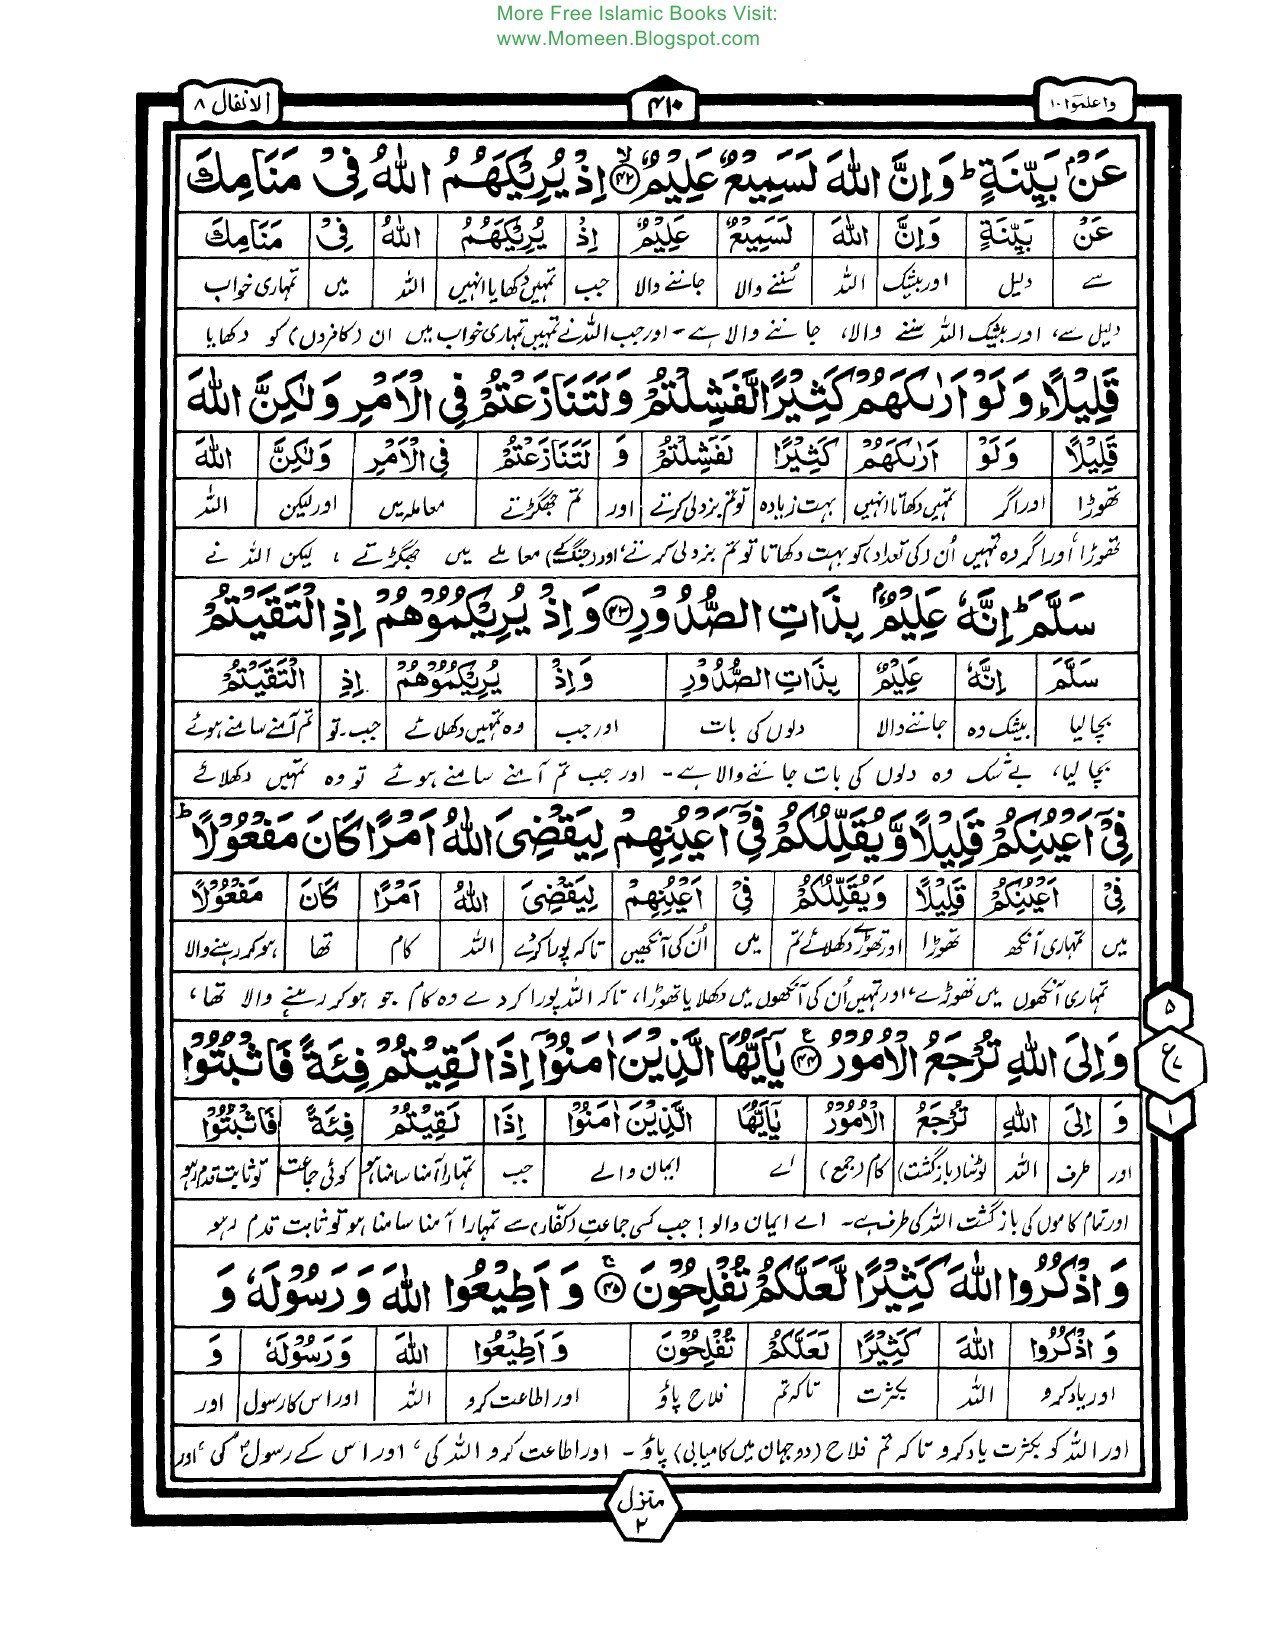 More Free Islamic Books Visit:
www.Momeen.Blogspot.com
واعلموا ۱۰ ۴۱۰ الانفال ۸
عَنْۢ بَيِّنَةٍ ؕ وَاِنَّ اللّٰهَ لَسَمِيْعٌ عَلِيْمٌ ۙ﴿۴۲﴾ اِذْ يُرِيْكَهُمُ اللّٰهُ فِىْ مَنَامِكَ
عَنْ بَيِّنَةٍ وَاِنَّ اللّٰهَ لَسَمِيْعٌ عَلِيْمٌ اِذْ يُرِيْكَهُمُ اللّٰهُ فِىْ مَنَامِكَ
سے دلیل اور بیشک اللہ سُننے والا جاننے والا جب تمہیں دکھایا انہیں اللہ میں تمہاری خواب
دلیل سے، اور بیشک اللہ سننے والا، جاننے والا ہے۔ اور جب اللہ نے تمہیں تمہاری خواب میں ان (کافروں) کو دکھایا
قَلِيْلًا ؕ وَلَوْ اَرٰىكَهُمْ كَثِيْرًا لَّفَشِلْتُمْ وَلَتَنَازَعْتُمْ فِى الْاَمْرِ وَلٰكِنَّ اللّٰهَ
قَلِيْلًا وَلَوْ اَرٰىكَهُمْ كَثِيْرًا لَفَشِلْتُمْ وَ لَتَنَازَعْتُمْ فِى الْاَمْرِ وَلٰكِنَّ اللّٰهَ
تھوڑا اور اگر تمہیں دکھاتا انہیں بہت زیادہ تو تم بزدلی کرتے اور تم جھگڑتے معاملہ میں اور لیکن اللہ
تھوڑا، اور اگر وہ تمہیں اُن (کی تعداد) کو بہت دکھاتا تو تم بزدلی کرتے، اور (جنگ کے) معاملے میں جھگڑتے ، لیکن اللہ نے
سَلَّمَ ؕ اِنَّهٗ عَلِيْمٌۢ بِذَاتِ الصُّدُوْرِ ﴿۴۳﴾ وَاِذْ يُرِيْكُمُوْهُمْ اِذِ الْتَقَيْتُمْ
سَلَّمَ اِنَّهٗ عَلِيْمٌ بِذَاتِ الصُّدُوْرِ وَاِذْ يُرِيْكُمُوْهُمْ اِذِ الْتَقَيْتُمْ
بچا لیا بیشک وہ جاننے والا دلوں کی بات اور جب وہ تمہیں دکھلائے جب۔تو تم آمنے سامنے ہوئے
بچا لیا، بے شک وہ دلوں کی بات جاننے والا ہے۔ اور جب تم آمنے سامنے ہوئے تو وہ تمہیں دکھلائے
فِىْۤ اَعْيُنِكُمْ قَلِيْلًا وَّيُقَلِّلُكُمْ فِىْۤ اَعْيُنِهِمْ لِيَقْضِىَ اللّٰهُ اَمْرًا كَانَ مَفْعُوْلًا ؕ
فِىْ اَعْيُنِكُمْ قَلِيْلًا وَيُقَلِّلُكُمْ فِىْ اَعْيُنِهِمْ لِيَقْضِىَ اللّٰهُ اَمْرًا كَانَ مَفْعُوْلًا
میں تمہاری آنکھ تھوڑا اور تھوڑے دکھلائے تم میں اُن کی آنکھیں تاکہ پورا کردے اللہ کام تھا ہو کر رہنے والا
تمہاری آنکھوں میں تھوڑے، اور تمہیں اُن کی آنکھوں میں دکھلایا تھوڑا، تاکہ اللہ پورا کر دے وہ کام جو ہو کر رہنے والا تھا،
وَاِلَى اللّٰهِ تُرْجَعُ الْاُمُوْرُ ﴿۴۴﴾ يٰۤاَيُّهَا الَّذِيْنَ اٰمَنُوْۤا اِذَا لَقِيْتُمْ فِئَةً فَاثْبُتُوْا
وَ اِلَى اللّٰهِ تُرْجَعُ الْاُمُوْرُ يٰۤاَيُّهَا الَّذِيْنَ اٰمَنُوْا اِذَا لَقِيْتُمْ فِئَةً فَاثْبُتُوْا
اور طرف اللہ لوٹنا (بازگشت) کام (جمع) اے ایمان والے جب تمہارا آمنا سامنا ہو کوئی جماعت تو ثابت قدم رہو
اور تمام کاموں کی بازگشت اللہ کی طرف ہے۔ اے ایمان والو! جب کسی جماعت (کفار) سے تمہارا آمنا سامنا ہو تو ثابت قدم رہو
وَاذْكُرُوا اللّٰهَ كَثِيْرًا لَّعَلَّكُمْ تُفْلِحُوْنَ ۚ﴿۴۵﴾ وَاَطِيْعُوا اللّٰهَ وَرَسُوْلَهٗ وَ
وَاذْكُرُوا اللّٰهَ كَثِيْرًا لَعَلَّكُمْ تُفْلِحُوْنَ وَاَطِيْعُوا اللّٰهَ وَرَسُوْلَهٗ وَ
اور یاد کرو اللہ بکثرت تاکہ تم فلاح پاؤ اور اطاعت کرو اللہ اور اس کا رسول اور
اور اللہ کو بکثرت یاد کرو تاکہ تم فلاح (دو جہان میں کامیابی) پاؤ ۔ اور اطاعت کرو اللہ کی، اور اس کے رسولؐ کی، اور
۵
ع
۱
منزل
۲